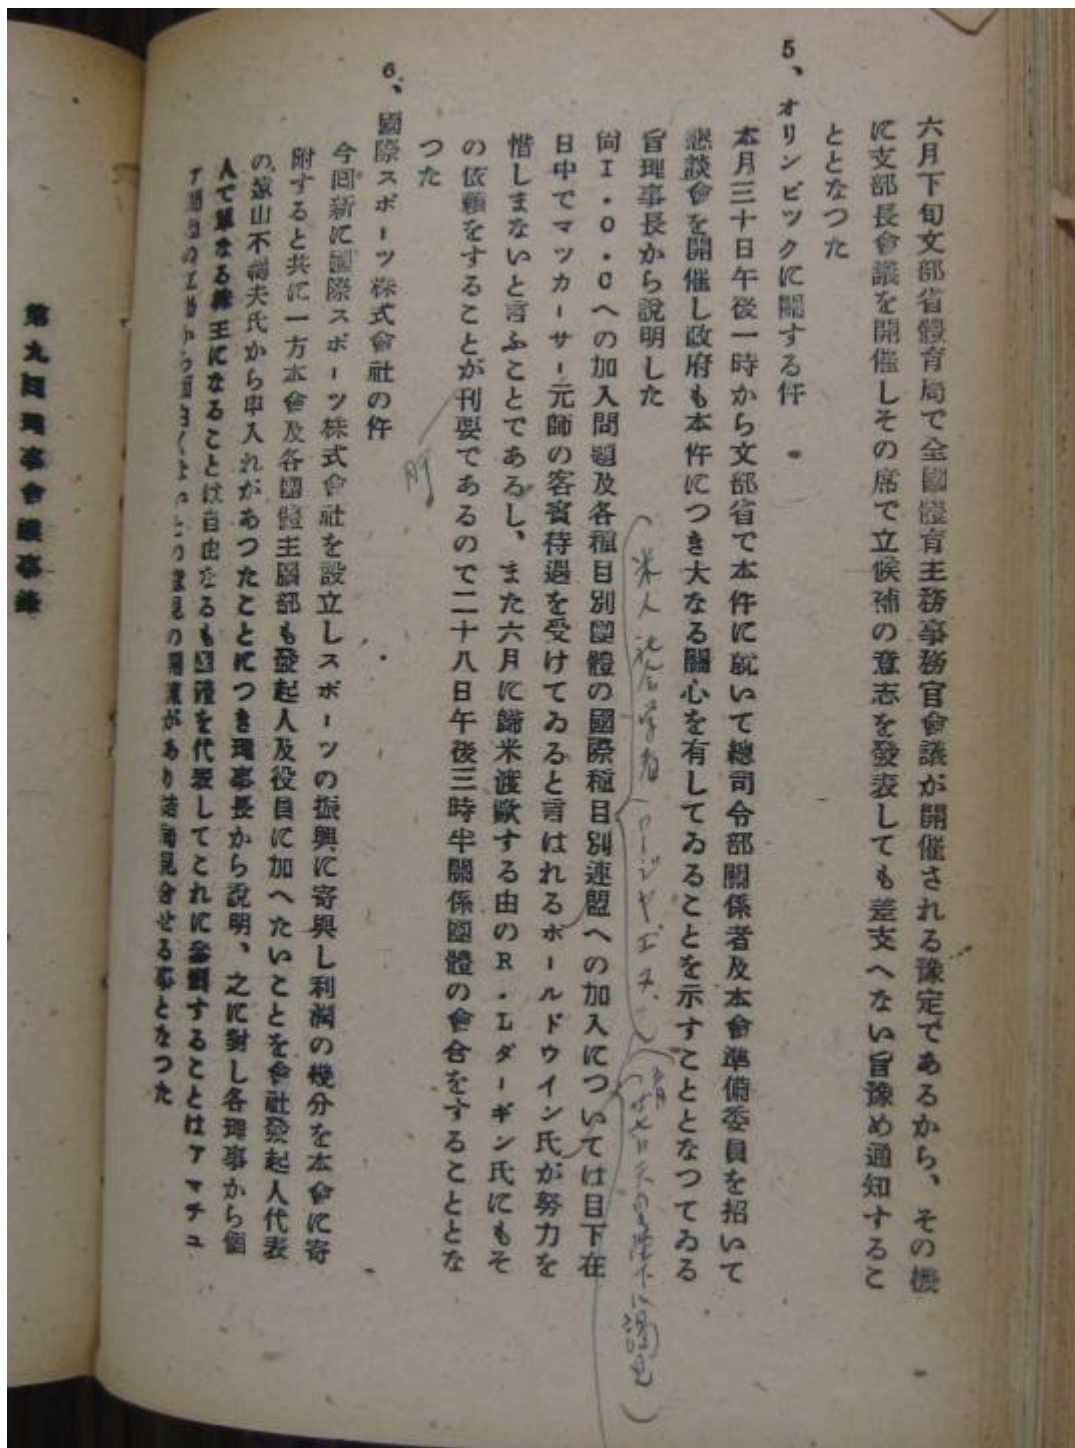 六月下旬文部省體育局で全國體育主務事務官會議が開催される豫定であるから、その機
に支部長會議を開催しその席で立候補の意志を發表しても差支へない旨豫め通知するこ
ととなつた
5、オリンピックに關する件
本月三十日午後一時から文部省で本件に就いて總司令部關係者及本會準備委員を招いて
懇談會を開催し政府も本件につき大なる關心を有してゐることを示すこととなつてゐる
旨理事長から說明した
米人社会学者(ロージヤエス、)
尙I・O・Cへの加入問題及各種目別團體の國際種目別連盟への加入については目下在
日中でマッカーサー元師の客賓待遇を受けてゐると言はれるボールドウイン氏が努力を
惜しまないと言ふことであるし、また六月に歸米渡歐する由のR・Lダーギン氏にもそ
の依賴をすることが刊要であるので二十八日午後三時半關係團體の會合をすることとな
つた
肝
6、國際スポーツ株式會社の件
今囘新に國際スポーツ株式會社を設立しスポーツの振興に寄與し利潤の幾分を本會に寄
附すると共に一方本會及各團體主腦部も發起人及役員に加へたいことを會社發起人代表
の遠山不 夫氏から申入れがあつたことにつき理事長から說明、之に對し各理事から個
人で單なる株主になることは自由なるも團體を代表してこれに參劃することはアマチュ
の開陳があり結局見合せる事となつた
第九囘理事會議事錄